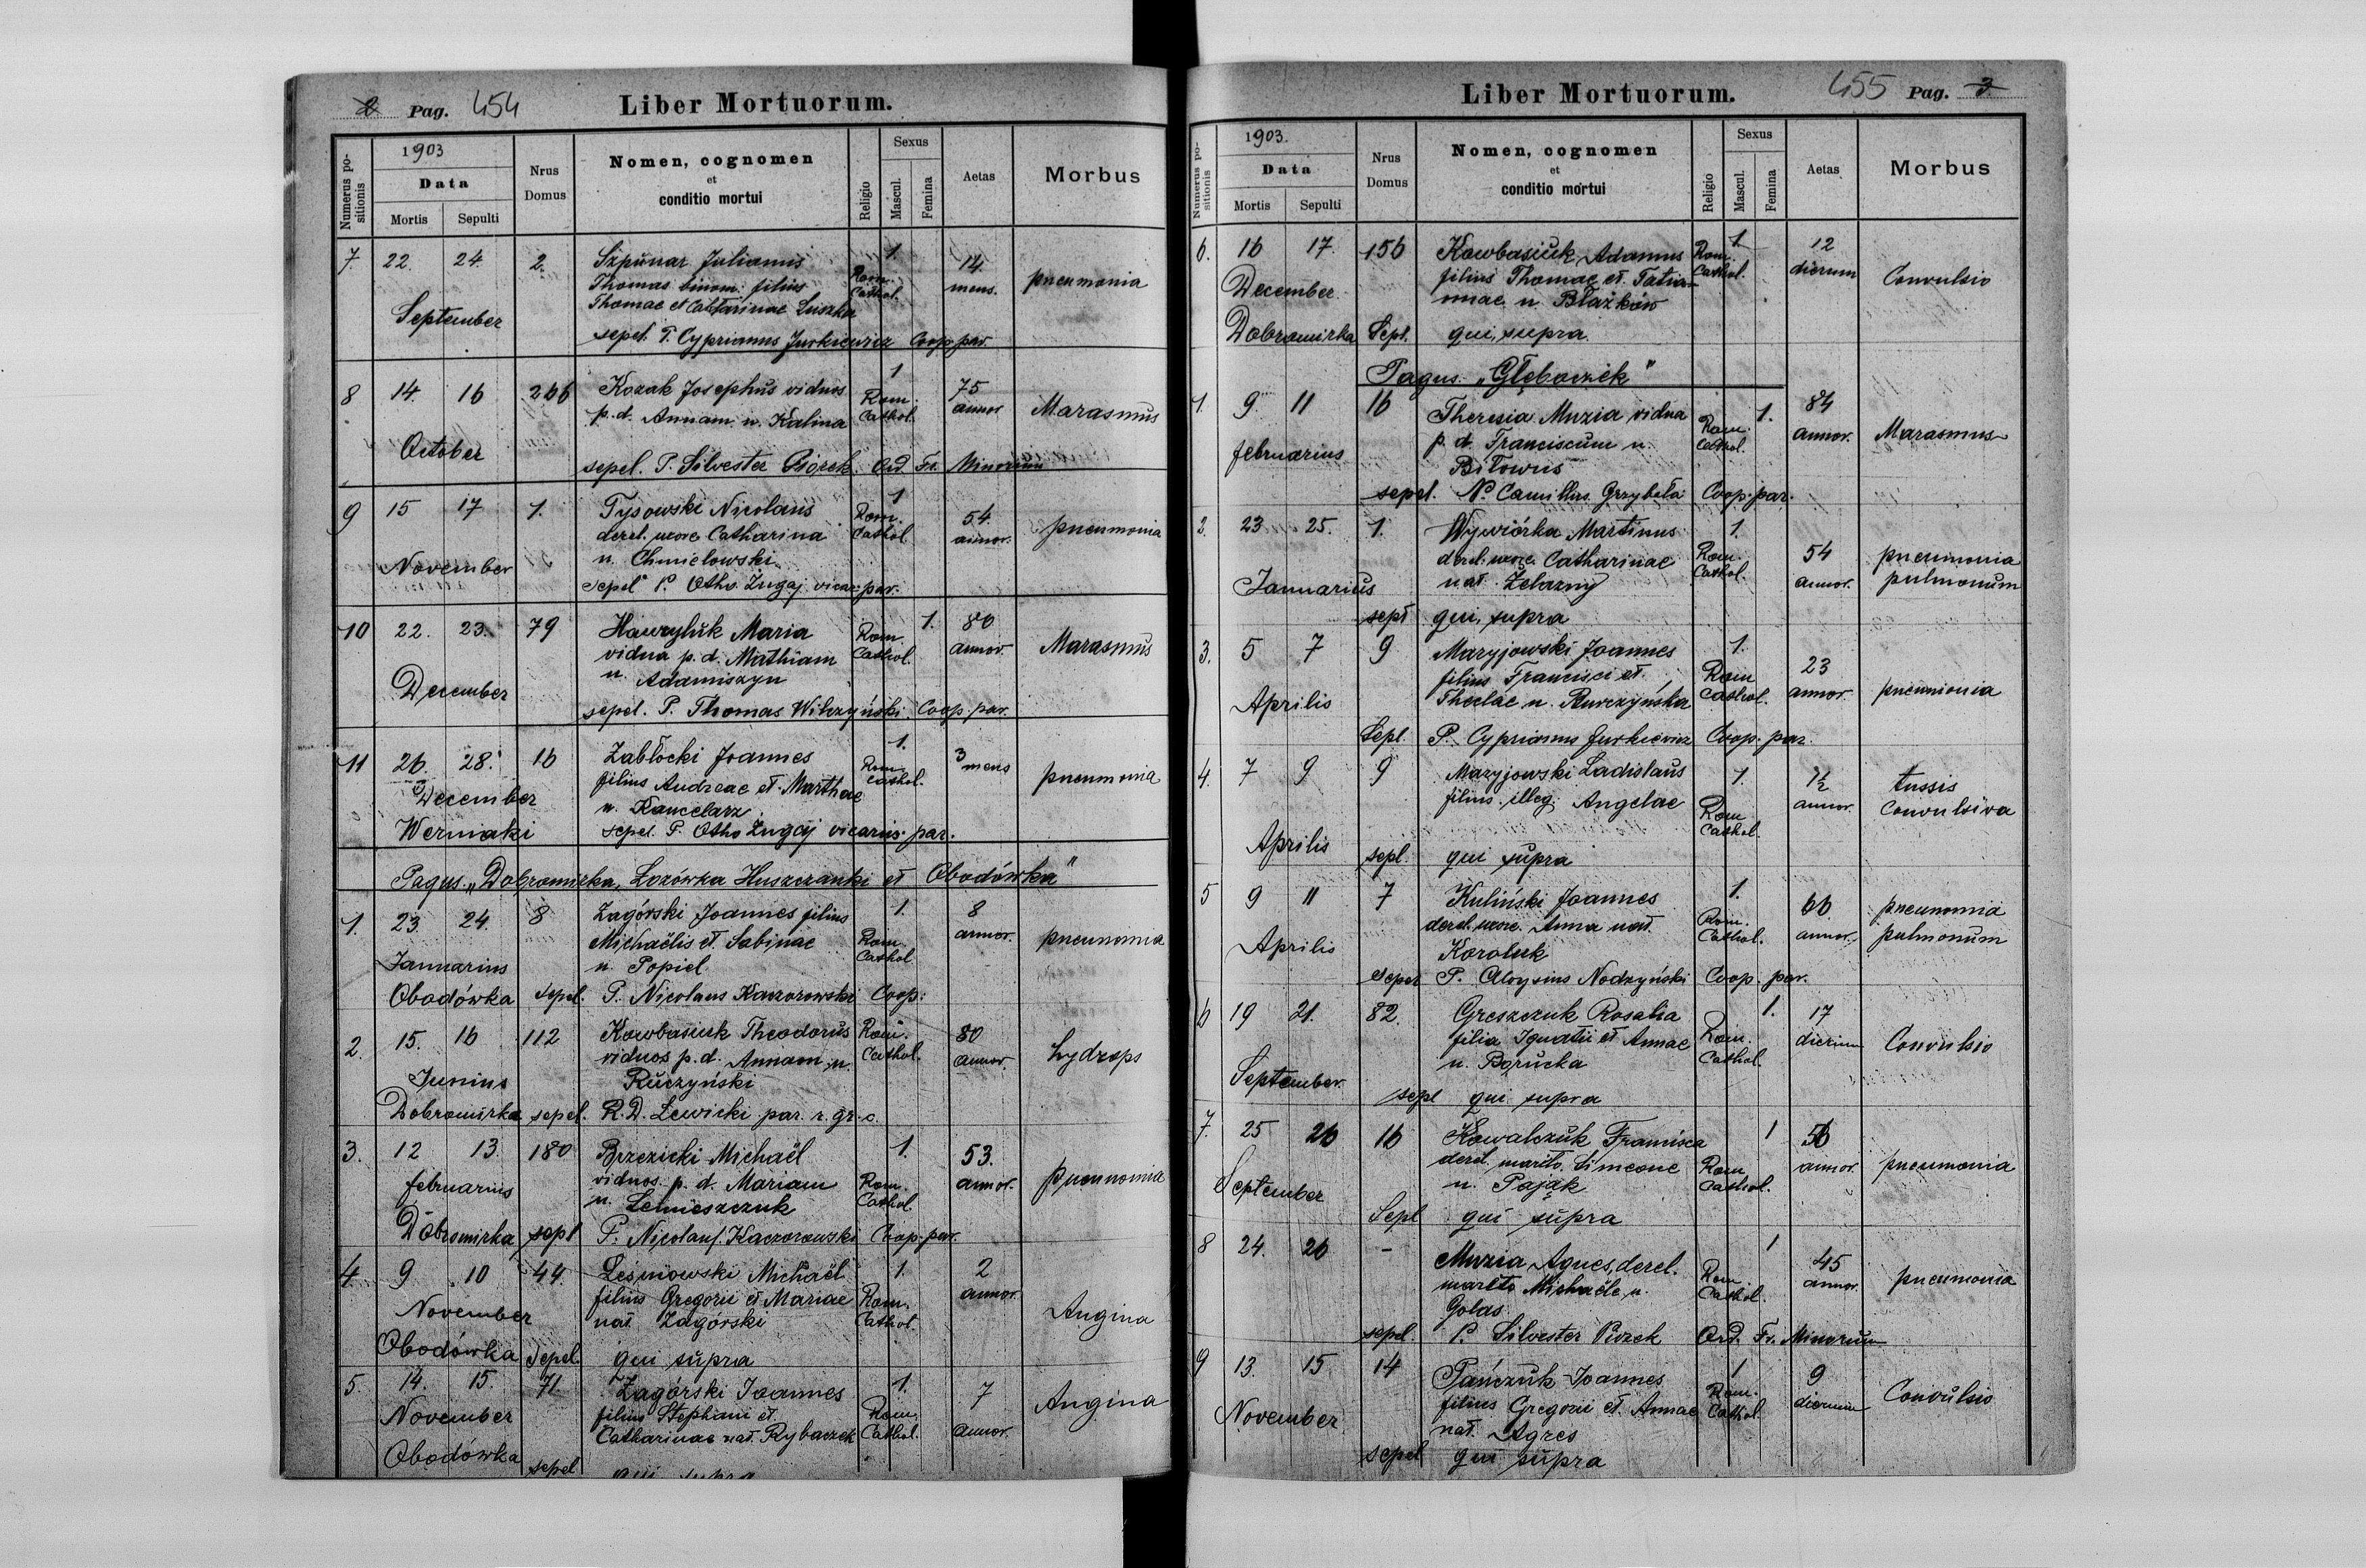 2 Pag. 454 Liber Mortuorum.
Numerus positionis
1903
Data
Mortis Sepulti
Nrus Domus
Nomen, cognomen
et
conditio mortui
Religio
Sexus
Mascul. Femina
Aetas
Morbus
7. 22. 24. 2. Szpunar Julianus 1. 14.
Thomas binom. filius Rom. mens. pneumonia
Thomae et Catharinae Luszka Cathol.
September
sepel. P. Cyprianus Jurkiewicz Coop. par.
8 14. 16 266 Kozak Josephus viduus 1 75
p. d. Annam n. Kalina Rom. Cathol. annor Marasmus
October
sepel. P. Silvester Piorek Ord Fr. Minorum
9 15 17 1. Tysowski Nicolaus 1 54.
derel. uxore Catharina Rom. Cathol. annor. pneumonia
n. Chmielowski
November
sepel P. Otho Zugaj vicar. par.
10 22. 23. 79 Hawryluk Maria 1. 80
vidua p. d. Mathiam Rom. Cathol. annor. Marasmus
n. Adamiszyn
December
sepel. P. Thomas Wilczyński Coop. par.
11 26 28. 16 Zabłocki Joannes 1. 3 mens
filius Andreae et Marthae Rom. Cathol. pneumonia
December
n. Kancelarz
Werniaki sepel. P. Otho Zugaj vicarius par.
Pagus „Dobromirka, Łozówka Huszczanki et Obodówka"
1. 23. 24. 8 Zagórski Joannes filius 1. 8
Michaëlis et Sabinae Rom. Cathol. annor. pneumonia
Januarius n. Popiel
Obodówka sepel. P. Nicolaus Kaczorowski Coop.
2. 15. 16 112 Kowbasiuk Theodorus Rom. 80
viduos p. d. Annam n. Cathol. annor. hydrops
Junius Ruczyński
Dobromirka sepel. R. D. Lewicki par. r. gr. c.
3. 12 13 180 Brzezicki Michaël 1. 53.
viduos p. d. Mariam Rom. Cathol. annor. pneumonia
februarius n. Lemieszczuk
Dobromirka sepl P. Nicolaus Kaczorowski Coop. par.
4. 9 10 44. Leśniowski Michaël 1. 2
filius Gregorii et Mariae Rom. Cathol. annor. Angina
November nat Zagórski
Obodówka Sepel. qui supra
5. 14. 15. 71 Zagórski Joannes 1. 7
November filius Stephani et Rom. Angina
Catharinae nat. Rybaczek Cathol. annor.
Obodówka sepel qui supra
Liber Mortuorum. 455 Pag. 3
Numerus positionis
1903.
Data
Mortis Sepulti
Nrus Domus
Nomen, cognomen
et
conditio mortui
Religio
Sexus
Mascul. Femina
Aetas
Morbus
6. 16 17. 156 Kowbasiuk Adamus Rom. 1 12
filius Thomae et Tatia- Cathol. dierum Convulsio
December nnae n. Błażków
Dobromirka Sepl. qui supra.
Pagus „Głęboczek"
1. 9 11 16 Theresia Muzia vidua 1. 84
p. d. Franciscum n. Rom. Cathol. annor. Marasmus
februarius Biłowus
sepel. P. Camillus Grzybała Coop. par.
2. 23 25. 1. Wywiórka Martinus 1.
derel. uxore Catharinae Rom. Cathol. 54 annor. pneumonia pulmonum
Januarius nat. Żelazny
sepł qui supra
3. 5 7 9 Maryjowski Joannes 1. 23
filius Francisci et Rom Cathol. annor. pneumonia
Aprilis Theclae n. Burczyńska
Sepl. P. Cyprianus Jurkiewicz Coop. par.
4. 7 9 9 Maryjowski Ladislaus 1. 1½ tussis
filius illeg. Angelae Rom Cathol. annor. Convulsiva
Aprilis
sepl. qui supra
5 9 11 7 Kuliński Joannes 1. 66 pneumonia
derel. uxore Anna nat. Rom. Cathol. annor. pulmonum
Aprilis Koroluk
sepel P. Aloysius Nodzyński Coop. par.
6 19 21. 82. Greszczuk Rosalia 1. 17
filia Ignatii et Annae Rom. Cathol. dierum Convulsio
n. Borucka
September
sepl qui supra
7. 25 26 16 Kowalczuk Francisca 1 56
derel. marito Simeone Rom Cathol. annor. pneumonia
September n. Pająk
Sepl qui supra
8 24. 26 - Muzia Agnes, derel. 1 45
marito Michaële n. Rom. Cathol. annor. pneumonia
Golas
sepel P. Silvester Piorek Ord. Fr. Minorum
9 13. 15 14 Pańczuk Joannes 1 9
filius Gregorii et Annae Rom. Cathol dierum Convulsio
November nat. Agres
sepel qui supra